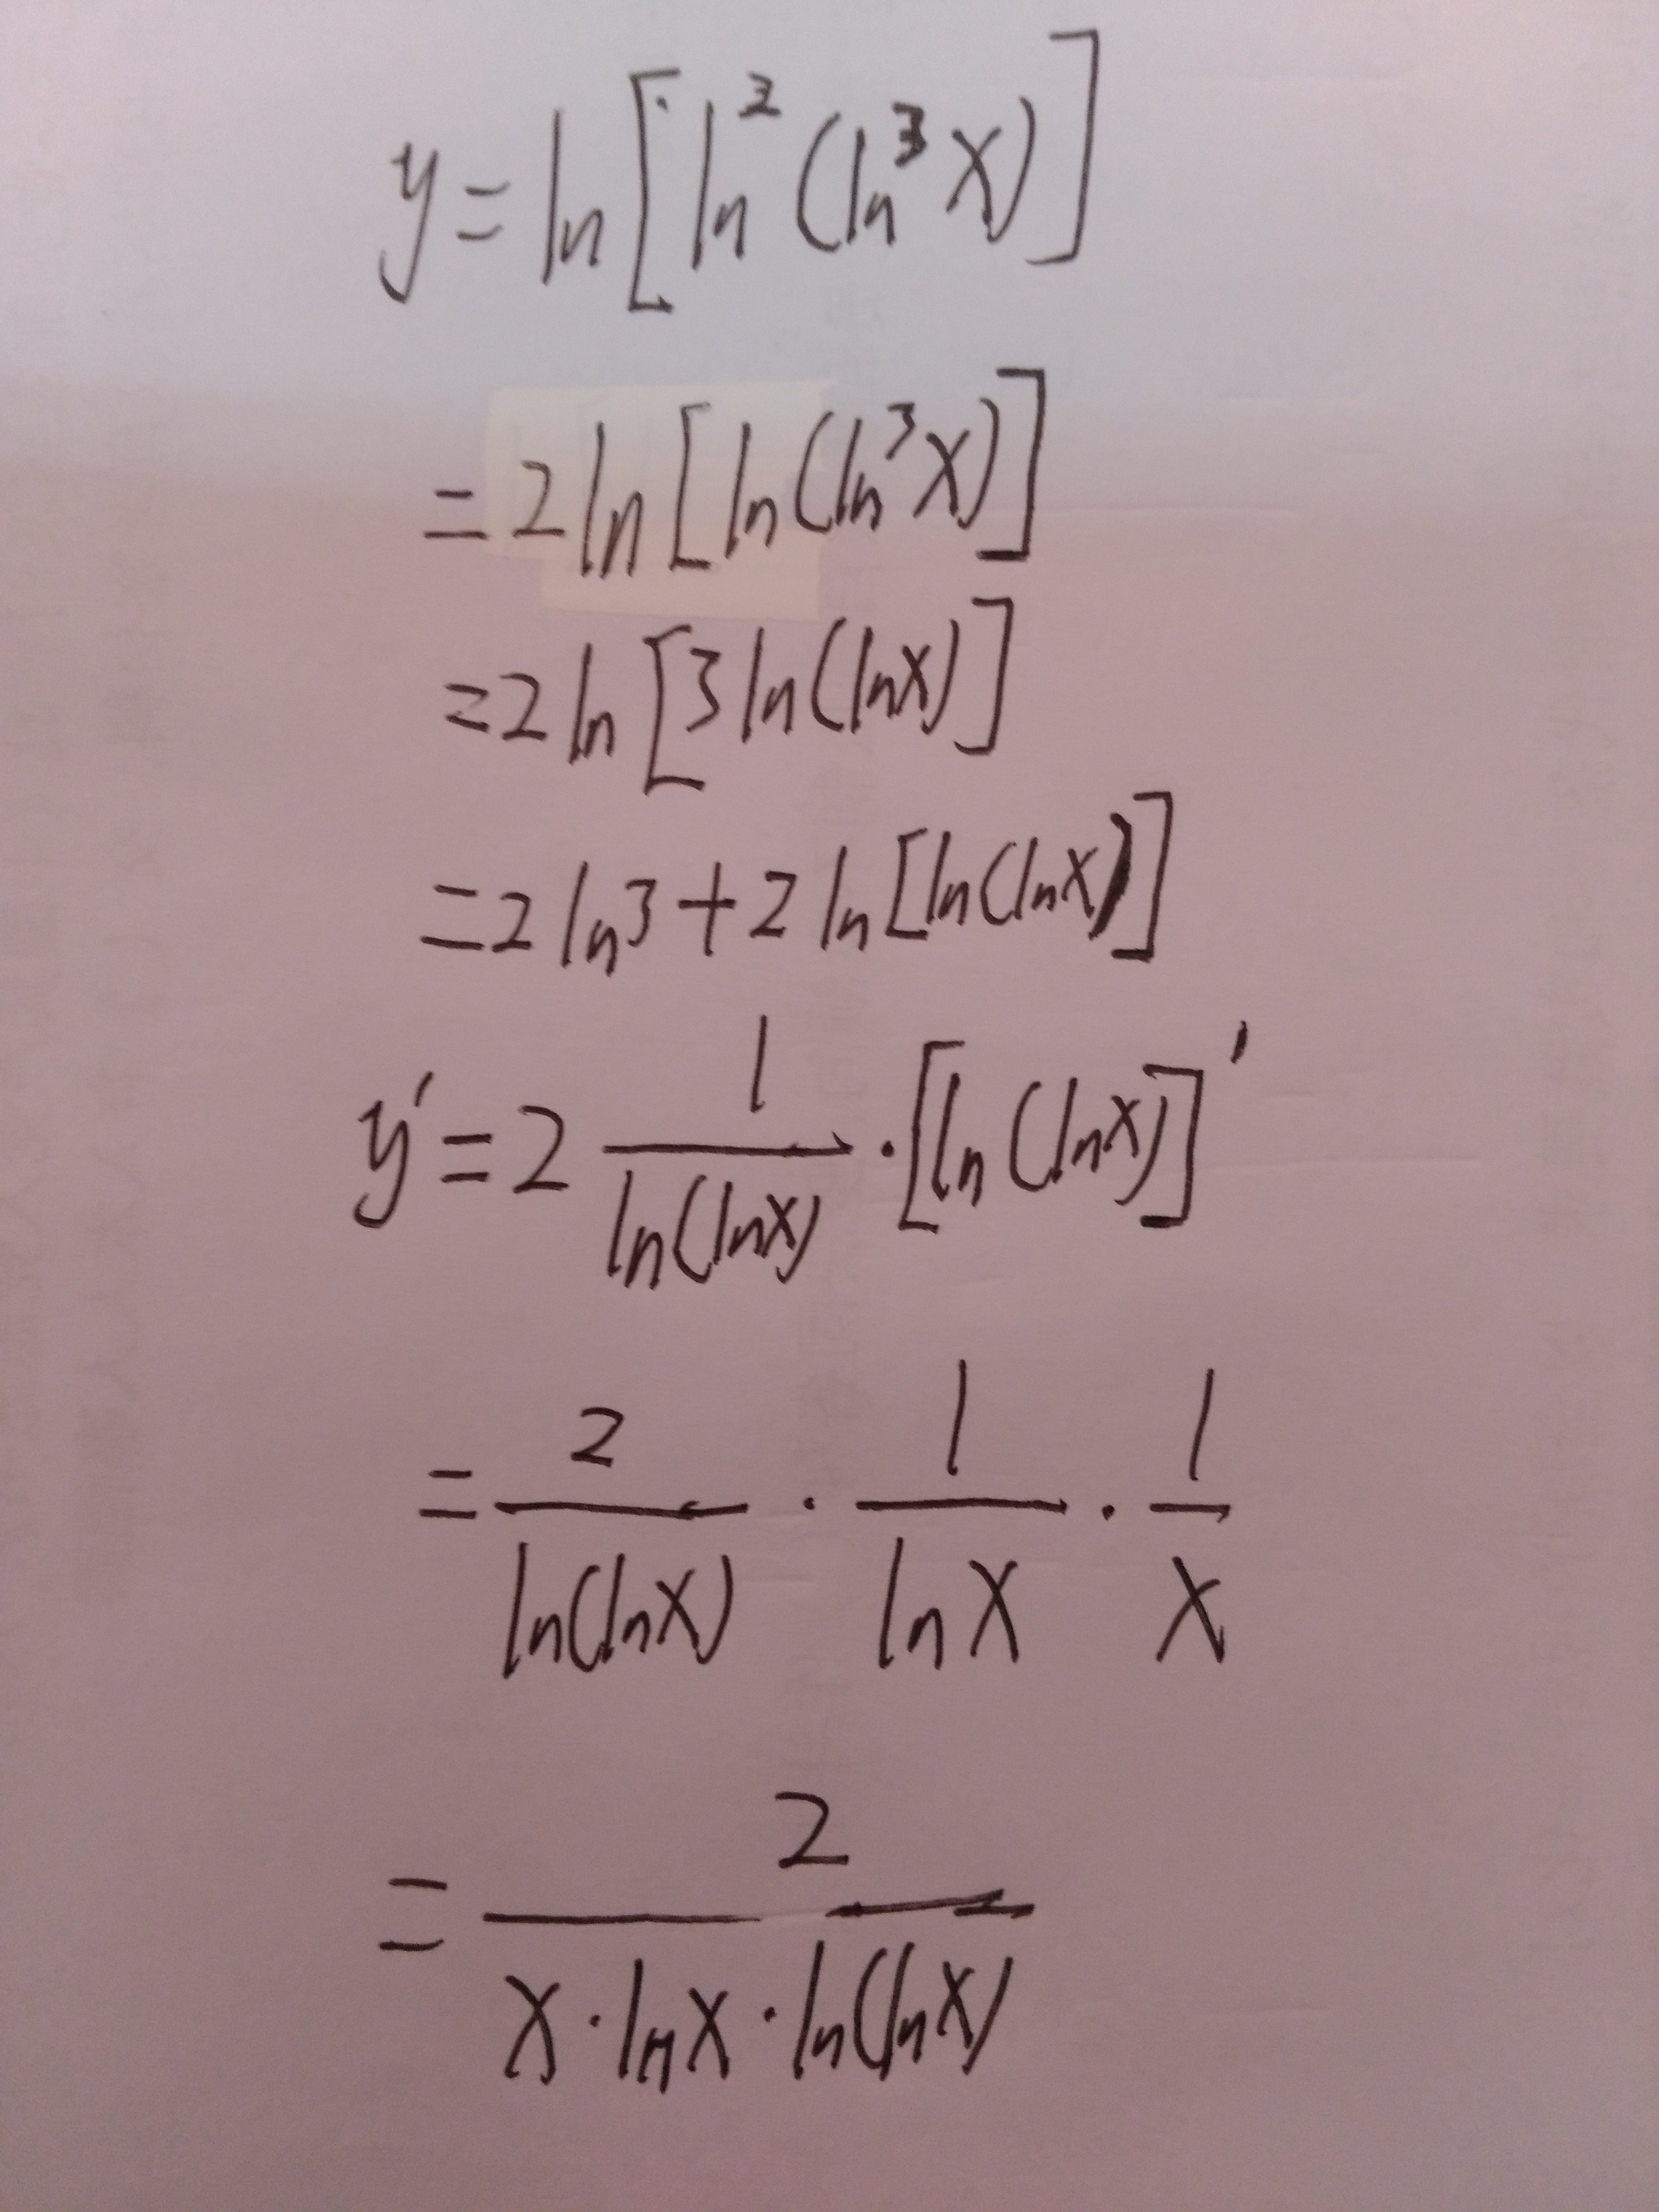 y = ln[ln²(ln³x)]
= 2ln[ln(ln³x)]
= 2ln[3ln(lnx)]
= 2ln3 + 2ln[ln(lnx)]
y' = 2 1/ln(lnx) · [ln(lnx)]'
= 2/ln(lnx) · 1/lnx · 1/x
= 2/x·lnx·ln(lnx)